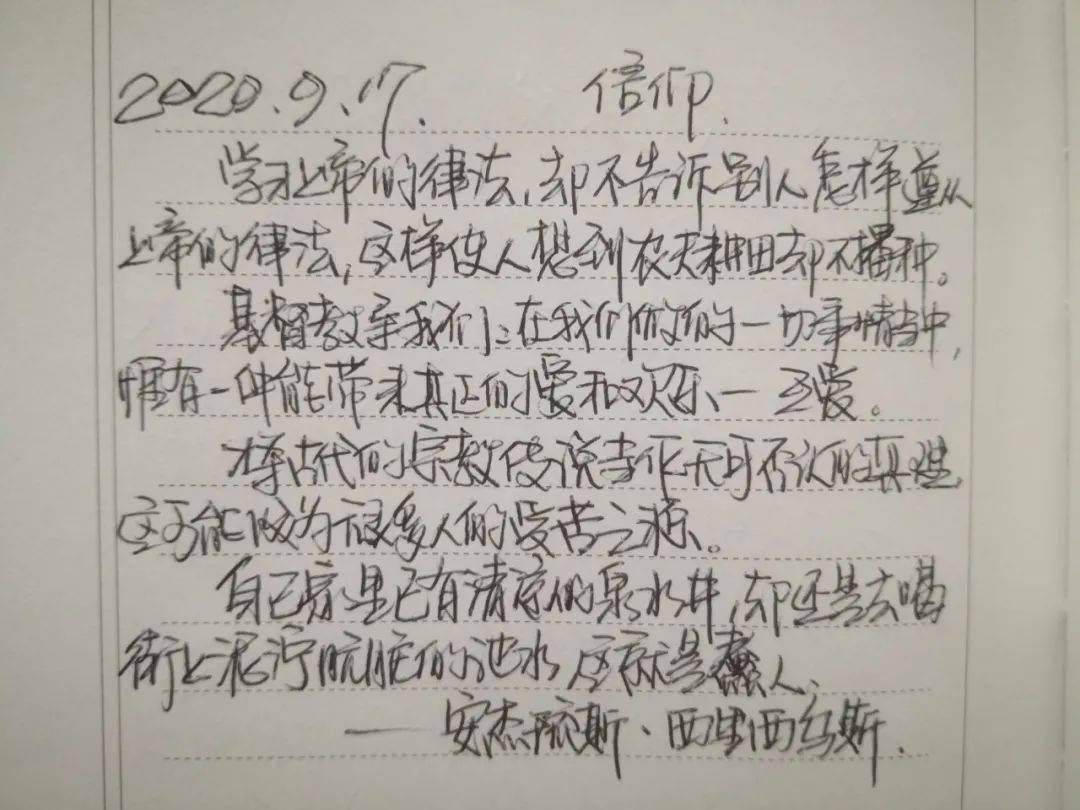 2020.9.17. 信仰.
学习上帝的律法,却不告诉别人怎样遵从
上帝的律法,这样使人想到农夫耕田却不播种。
基督教导我们:在我们做的的一切事情当中,
拥有一种能带来真正的爱和欢乐、一至爱。
将古代的宗教传说当作无可否认的真理
这可能成为很多人的受苦之源。
自己家里已有清凉的泉水井,却还是去喝
街上泥泞肮脏的池水,这就是蠢人、
——安杰琉斯·西里西乌斯.